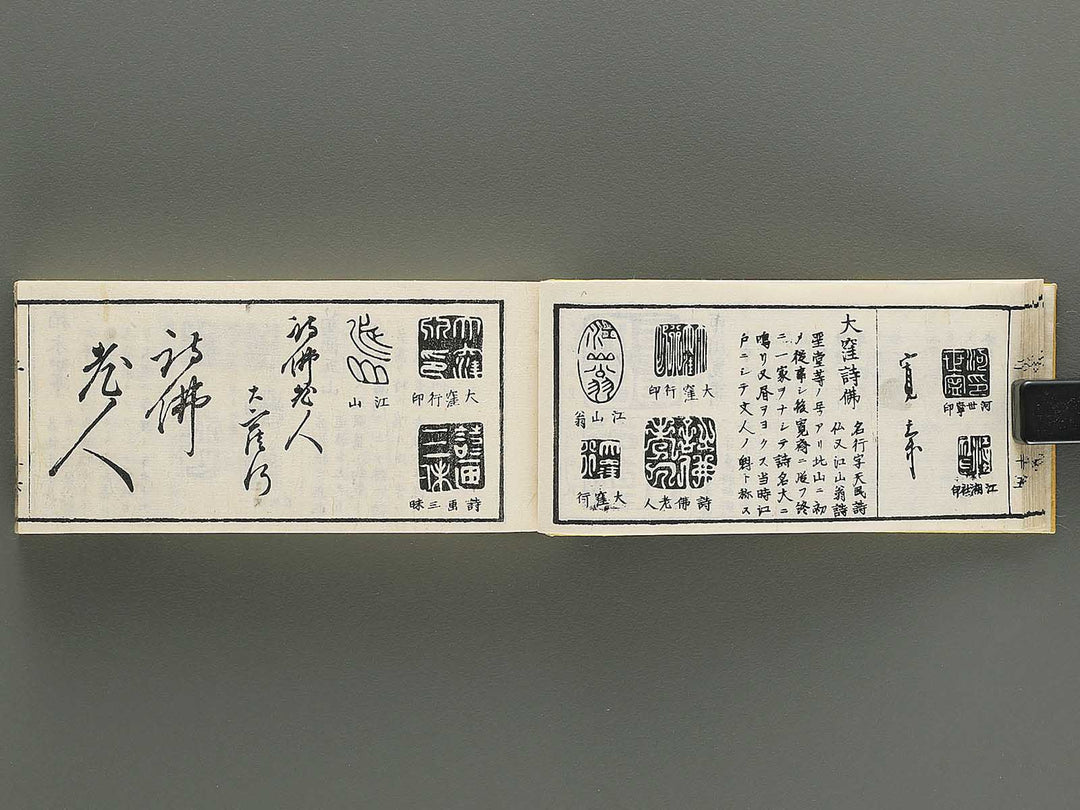 河世寧印
江湖社印
寛斎
大窪詩佛
名行字天民詩
仏又江山翁詩
聖堂等ノ号アリ北山ニ初
メ従事シ後寛斎ニ従フ終
ニ一家ヲナシテ詩名大ニ
鳴リ又昼ヲヨクス当時江
戸ニシテ文人ノ魁ト称ス
大窪行印
詩佛老人
江山翁
大窪行
大窪行印
詩画三昧
江山
詩佛老人
大窪行
詩佛
老人